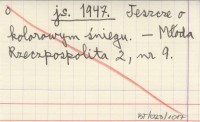 js. 1947. Jeszcze o
kolorowym śniegu. — Młoda
Rzeczpospolita 2, nr 9.